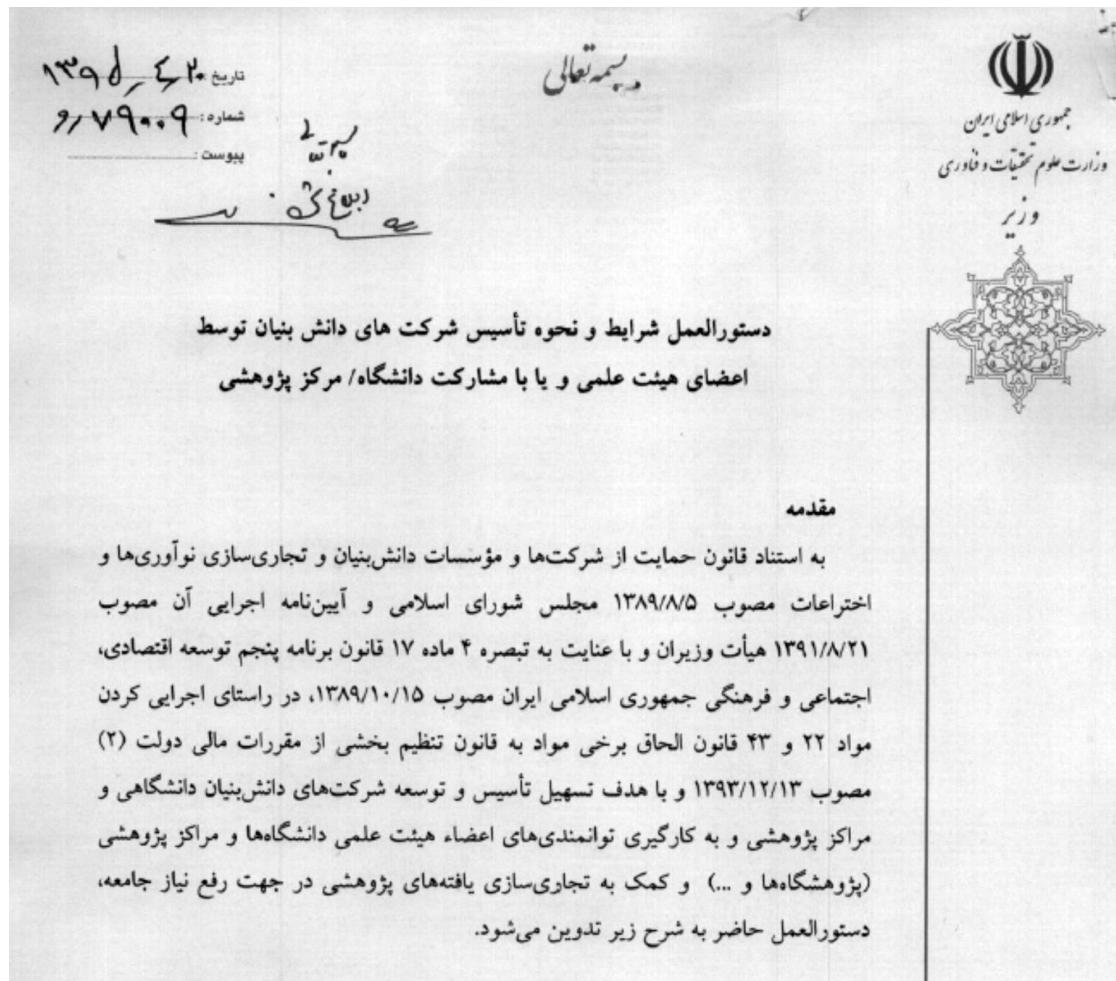 بسمه تعالی
جمهوری اسلامی ایران
وزارت علوم تحقیقات و فناوری
وزیر
تاریخ: ۱۳۹۵/۴/۲۰
شماره: ۷۹۰۰۹/و
پیوست:
دستورالعمل شرایط و نحوه تأسیس شرکت های دانش بنیان توسط
اعضای هیئت علمی و یا با مشارکت دانشگاه/ مرکز پژوهشی
مقدمه
به استناد قانون حمایت از شرکت‌ها و مؤسسات دانش‌بنیان و تجاری‌سازی نوآوری‌ها و
اختراعات مصوب ۱۳۸۹/۸/۵ مجلس شورای اسلامی و آیین‌نامه اجرایی آن مصوب
۱۳۹۱/۸/۲۱ هیأت وزیران و با عنایت به تبصره ۴ ماده ۱۷ قانون برنامه پنجم توسعه اقتصادی،
اجتماعی و فرهنگی جمهوری اسلامی ایران مصوب ۱۳۸۹/۱۰/۱۵، در راستای اجرایی کردن
مواد ۲۲ و ۴۳ قانون الحاق برخی مواد به قانون تنظیم بخشی از مقررات مالی دولت (۲)
مصوب ۱۳۹۳/۱۲/۱۳ و با هدف تسهیل تأسیس و توسعه شرکت‌های دانش‌بنیان دانشگاهی و
مراکز پژوهشی و به کارگیری توانمندی‌های اعضاء هیئت علمی دانشگاه‌ها و مراکز پژوهشی
(پژوهشگاه‌ها و ...) و کمک به تجاری‌سازی یافته‌های پژوهشی در جهت رفع نیاز جامعه،
دستورالعمل حاضر به شرح زیر تدوین می‌شود.